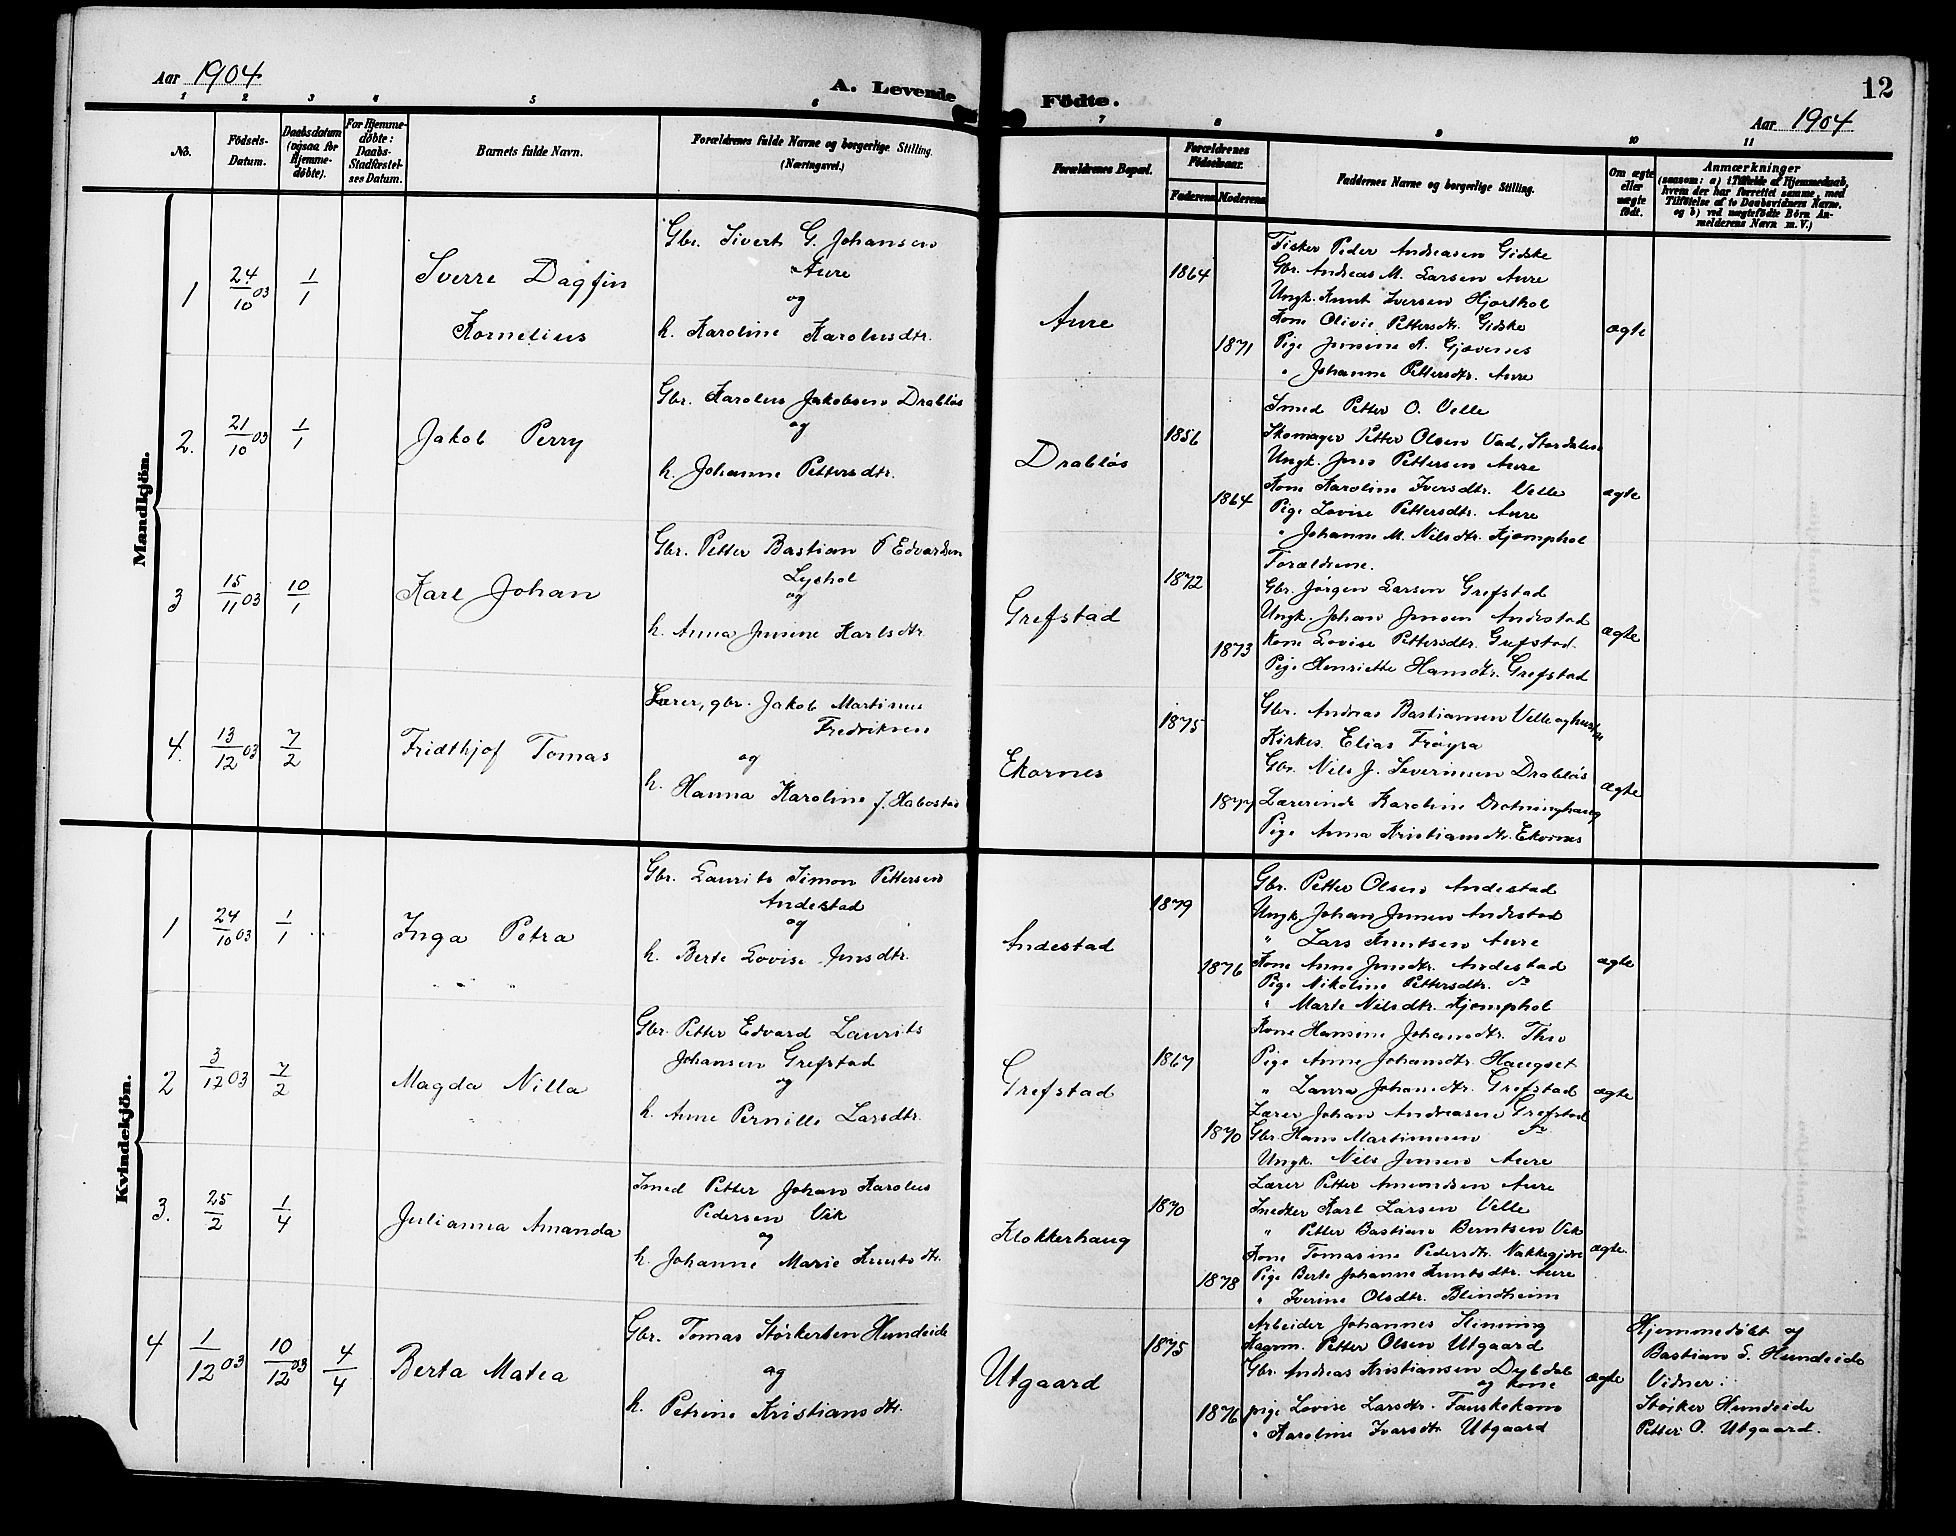 Aar 1904
A. Levende Födte.
12
Aar 1904
1 2 3 4 5 6 7 8 9 10 11
No.
Födsels-Datum.
Daabsdatum (ogsaa for Hjemme-døbte).
For Hjemme-døbte: Daabs-Stadfæstel-ses Datum.
Barnets fulde Navn.
Forældrenes fulde Navne og borgerlige Stilling. (Næringsvei.)
Forældrenes Bopæl.
Forældrenes Födselsaar.
Faderens Moderens
Faddernes Navne og borgerlige Stilling.
Om ægte eller uægte født.
Anmærkninger
(saasom: a) i Tilfælde af Hjemmedaab, hvem der har forrettet samme, med Tilföielse af to Daabsvidners Navne. og b) ved uægtefödte Börn An-melderens Navn m. V.)
Mandkjön.
1 24/10 03 1/1
Sverre Dagfin
Kornelius
Gbr. Sivert G. Johansen
Aure
og
h. Karoline Karolusdtr.
Aure
1864
1871
Fisker Peder Andreasen Gidske
Gbr. Andreas M. Larsen Aure
Ungk. Knut Iversen Hjorthol
Kone Olivie Pettersdtr. Gidske
Pige Jensine A. Gjævenes
" Johanne Pettersdtr. Aure
ægte
2. 21/10 03 1/1
Jakob Perry
Gbr. Karolus Jakobsen Drabløs
og
h. Johanne Pettersdtr.
Drabløs
1856
1864
Smed Petter O. Velle
Skomager Petter Olsen Vad, Stordalen
Ungk. Jens Pettersen Aure
Kone Karoline Iversdtr. Velle
Pige Lovise Pettersdtr. Aure
" Johanne M. Nilsdtr. Kjemphol
ægte
3 15/11 03 10/1
Karl Johan
Gbr. Petter Bastian P Edvardsen
Lyshol
og
h. Anna Jensine Karlsdtr.
Grefstad
1872
1873
Forældrene.
Gbr. Jørgen Larsen Grefstad
Ungk. Johan Jensen Andestad
Kone Lovise Pettersdtr. Grefstad.
Pige Henriette Hansdtr. Grefstad
ægte
4. 13/12 03 7/2
Fridthjof Tomas
Lærer, gbr. Jakob Martinus
Fredriksen
og
h. Hanna Karoline J. Habostad
Ekornes
1875
1877
Gbr. Andreas Bastiansen Velle og hustru
Kirkes. Elias Frøysa
Gbr. Nils J. Severinsen Drabløs
Lærerinde Karoline Drotninghaug
Pige Anna Kristiansdtr. Ekornes
ægte
Kvindekjön.
1 24/10 03 1/1
Inga Petra
Gbr. Laurits Simon Pettersen
Andestad
og
h. Berte Lovise Jensdtr.
Andestad
1879
1876
Gbr. Petter Olsen Andestad
Ungk. Johan Jensen Andestad
" Lars Knutsen Aure
Kone Anne Jensdtr. Andestad
Pige Nikoline Pettersdtr. do
" Marte Nilsdtr. Kjemphol
ægte
2 3/12 03 7/2
Magda Nilla
Gbr. Petter Edvard Laurits
Johansen Grefstad
og
h. Anne Pernille Larsdtr.
Grefstad
1867
1870
Kone Hansine Johansdtr. Thu
Pige Anne Johansdtr. Haugset
" Laura Johansdtr. Grefstad
Lærer Johan Andreasen Grefstad
Gbr. Hans Martinusen do
Ungk. Nils Jensen Aure
ægte
3. 25/2 1/4
Julianna Amanda
Smed Petter Johan Karolus
Pedersen Vik
og
h. Johanne Marie Knutsdtr.
Klokkerhaug
1870
1878
Lærer Petter Amundsen Aure
Snedker Karl Larsen Velle
" Petter Bastian Berntsen Vik
Kone Tomasine Pedersdtr. Nakkegjdre
Pige Berte Johanne Knutsdtr. Aure
" Iverine Olsdtr. Blindheim
ægte.
4 1/12 03 10/12 03 4/4
Berta Matea
Gbr. Tomas Størkersen Hundeide
og
h. Petrine Kristiansdtr.
Utgaard
1875
1876
Arbeider Johannes Henning
Kagrm. Petter Olsen Utgaard
Gbr. Andreas Kristiansen Dybdal
og kone
pige Lovise Larsdtr. Fauskekann
" Karoline Ivarsdtr Utgaard
ægte
Hjemmedøbt af
Bastian S. Hundeide
Vidner:
Støiker Hundeide
Petter O. Utgaard.